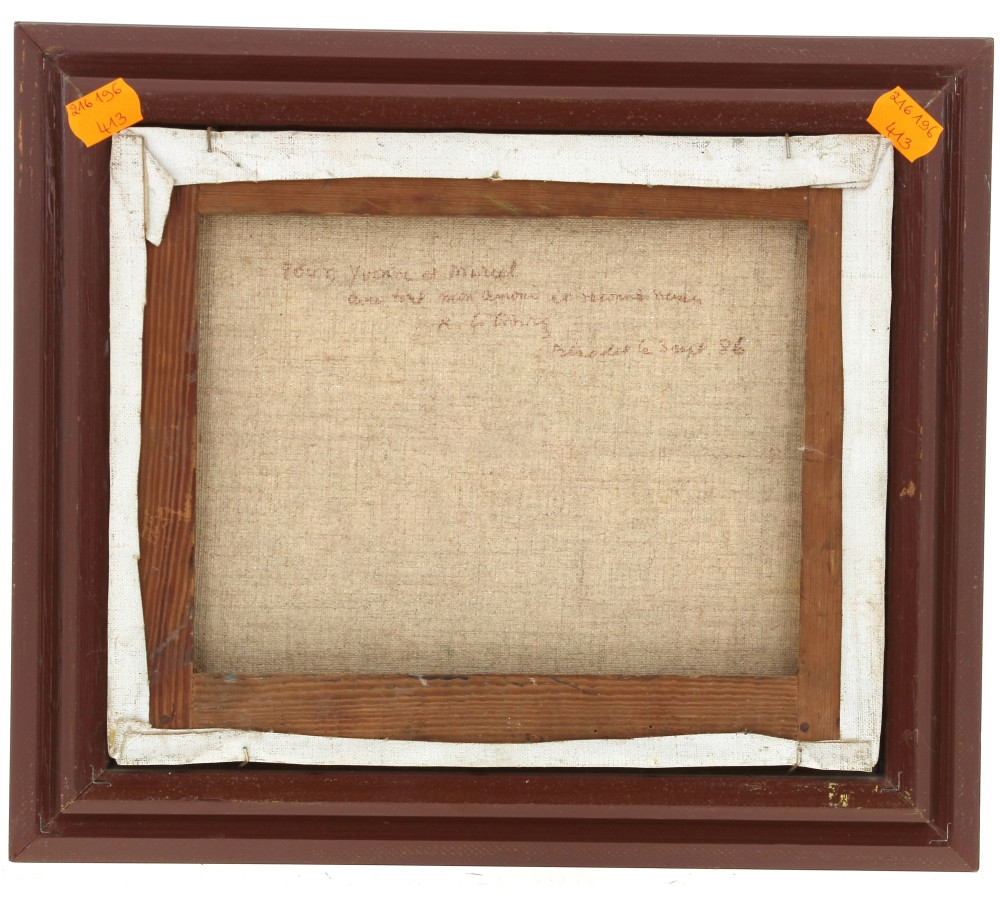 216 196
413
216 196
413
Pour Yvonne et Marcel
avec tout mon amour et reconnaissance
le 3 sept. 86